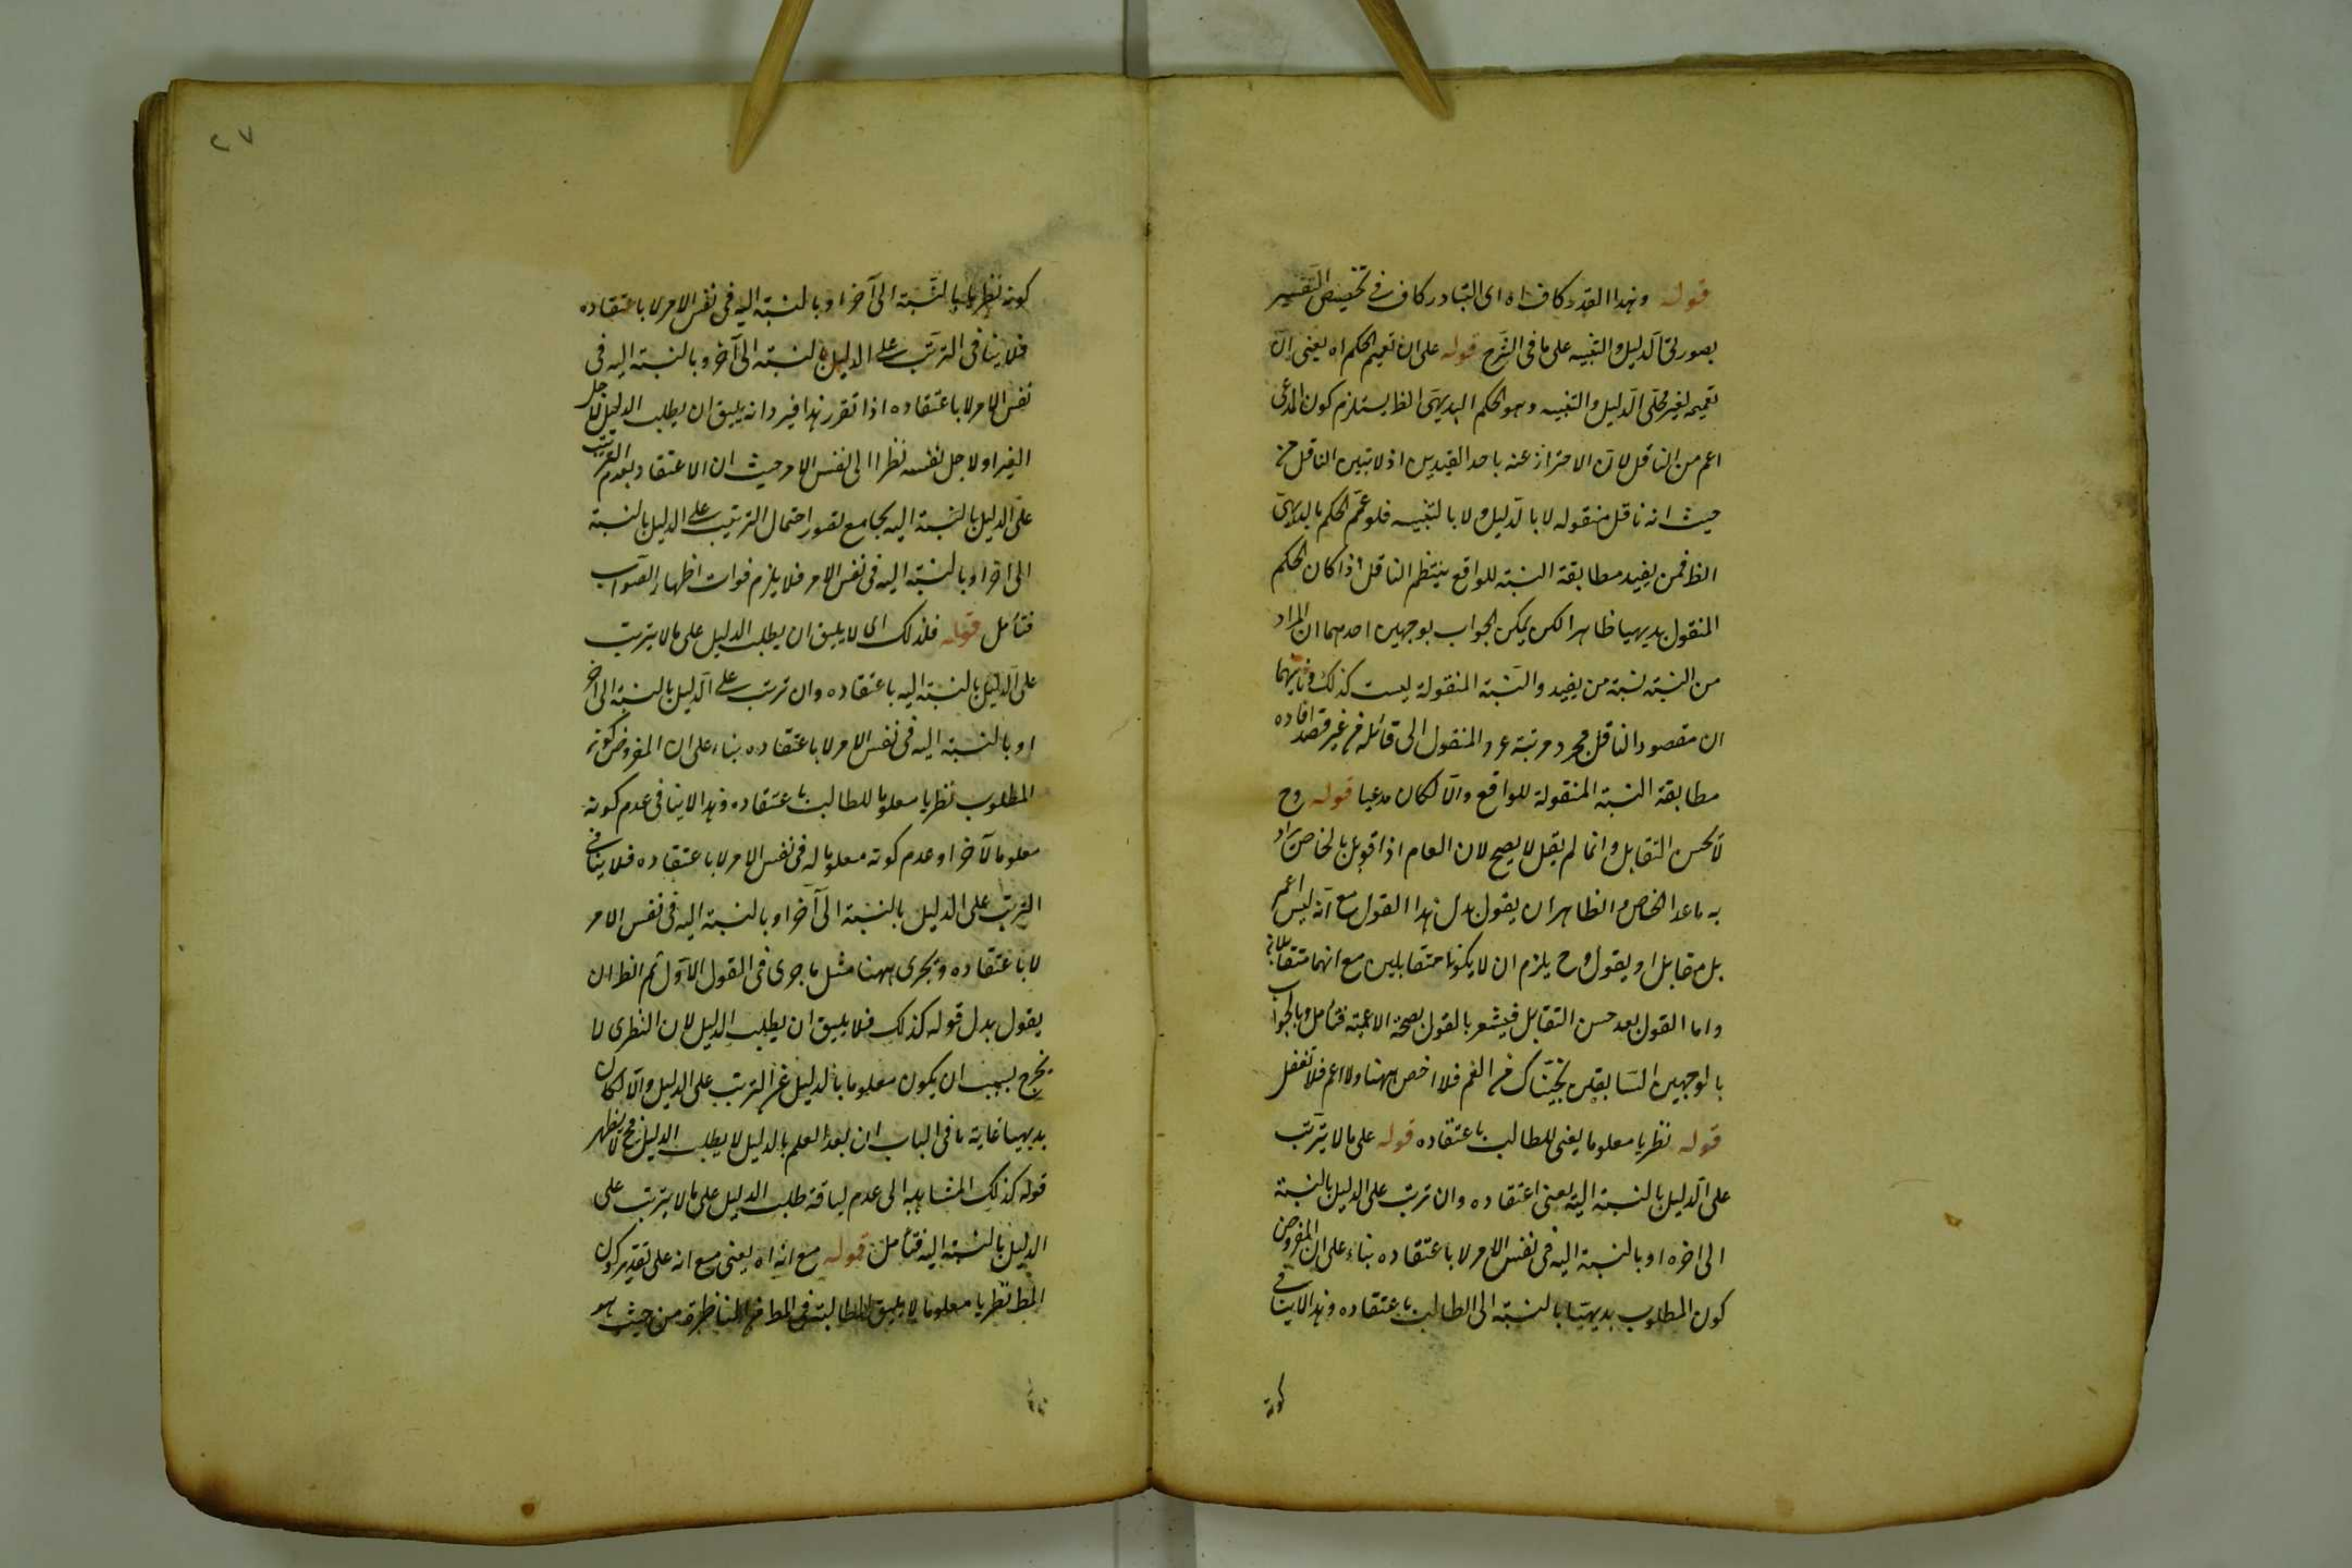 قوله وهذا القدر كاف اه اى التبادر كاف فى تخصيص التفسير
بصورتى الدليل والتنبيه على ما فى الشرح قوله على ان تعميم الحكم اه يعنى ان
تعميمه لغير محلى الدليل والتنبيه وهو الحكم البديهى الظ يستلزم كون المدعى
اعم من الناقل لان الاحتراز عنه باحد القيدين اذ لا يثبت الناقل من
حيث انه ناقل منقوله لا بالدليل ولا بالتنبيه فلو عمم الحكم بالبديهى
الظ فمن يفيد مطابقة النسبة للواقع ينتظم الناقل اذا كان الحكم
المنقول بديهيا ظاهرا لكن يمكن الجواب بوجهين احدهما ان المراد
من النسبة نسبة من يفيد والنسبة المنقولة ليست كذلك وثانيهما
ان مقصود الناقل مجرد نسبة المنقول الى قائله من غير قصد افاده
مطابقة النسبة المنقولة للواقع والا لكان مدعيا قوله وح
لا يحسن التقابل وانما لم يقل لا يصح لان العام اذا قوبل بالخاص يراد
به ما عدا الخاص والظاهر ان يقول بدل هذا القول مع انه ليس اعم
بل مقابل او يقول وح يلزم ان لا يكونا متقابلين مع انهما متقابلان
واما القول بعد حسن التقابل فيشعر بالقول بصحة الاعمية فتأمل وبالجواب
بالوجهين السابقين نجيناك من الغم فلا اخص ههنا ولا اعم فلا تغفل
قوله نظريا معلوما يعنى للطالب باعتقاده قوله على ما لا يترتب
على الدليل بالنسبة اليه يعنى اعتقاده وان ترتب على الدليل بالنسبة
الى اخره او بالنسبة اليه فى نفس الامر لا باعتقاده بناء على ان المفروض
كون المطلوب بديهيا بالنسبة الى الطالب باعتقاده وهذا لا ينافى
كونه
٢٧
كونه نظريا بالنسبة الى آخر او بالنسبة اليه فى نفس الامر لا باعتقاده
فلا ينافى الترتب على الدليل بالنسبة الى آخر وبالنسبة اليه فى
نفس الامر لا باعتقاده اذا تقرر هذا فيرد انه يليق ان يطلب الدليل لاجل
الغير او لاجل نفسه نظرا الى نفس الامر حيث ان الاعتقاد بعدم الترتب
على الدليل بالنسبة اليه يجامع تصور احتمال الترتب على الدليل بالنسبة
الى اخر او بالنسبة اليه فى نفس الامر فلا يلزم فوات اظهار الصواب
فتأمل قوله فلذلك اى لا يليق ان يطلب الدليل على ما لا يترتب
على الدليل بالنسبة اليه باعتقاده وان ترتب على الدليل بالنسبة الى اخر
او بالنسبة اليه فى نفس الامر لا باعتقاده بناء على ان المفروض كونه
المطلوب نظريا معلوما للطالب باعتقاده وهذا لا ينافى عدم كونه
معلوما لآخر او عدم كونه معلوما له فى نفس الامر لا باعتقاده فلا ينافى
الترتب على الدليل بالنسبة الى آخر او بالنسبة اليه فى نفس الامر
لا باعتقاده ويجرى ههنا مثل ما جرى فى القول الاول ثم الظ ان
يقول بدل قوله كذلك فلا يليق ان يطلب الدليل لان النظرى لا
يخرج بسبب ان يكون معلوما بالدليل عن الترتب على الدليل والا لكان
بديهيا غاية ما فى الباب ان بعد العلم بالدليل لا يطلب الدليل فح لا يظهر
قوله كذلك المشابهة الى عدم لياقة طلب الدليل على ما لا يترتب على
الدليل بالنسبة اليه فتأمل قوله مع انه اه يعنى مع انه على تقدير كون
المط نظريا معلوما لا يليق الطالب فى المط من المناظرة من حيث هو